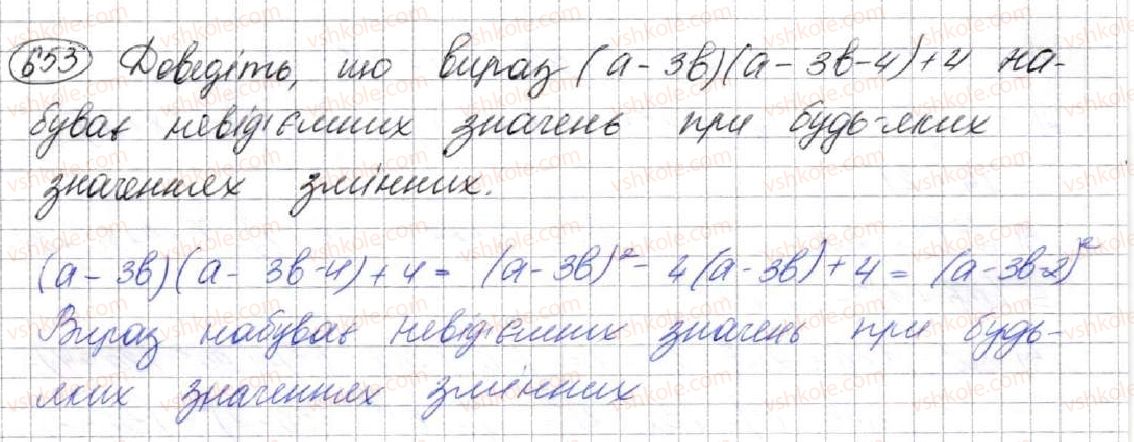 653 Доведіть, що вираз (a - 3b)(a - 3b - 4) + 4 на-
буває невід'ємних значень при будь-яких
значеннях змінних.
(a - 3b)(a - 3b - 4) + 4 = (a - 3b)² - 4(a - 3b) + 4 = (a - 3b - 2)²
Вираз набуває невід'ємних значень при будь-
яких значеннях змінних